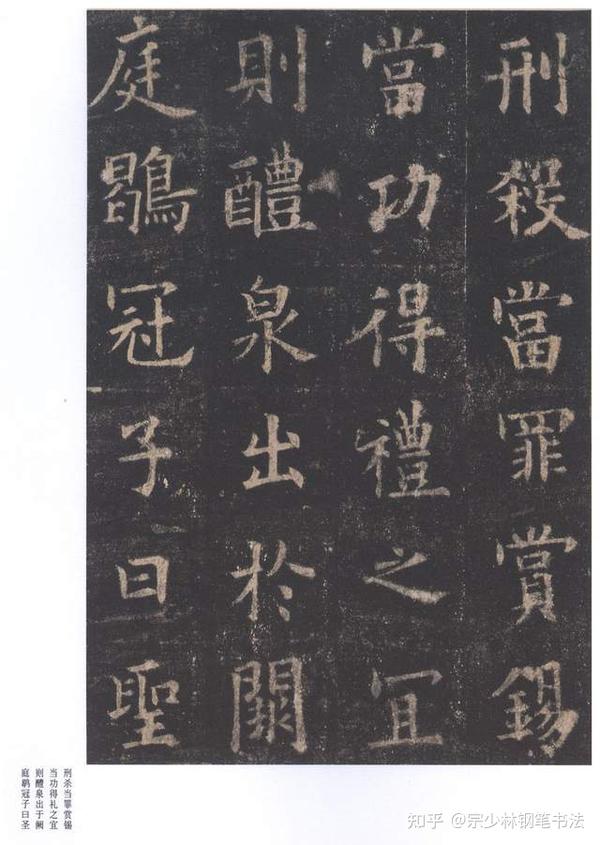 刑殺當罪賞錫
當功得禮之冝
則醴泉出於闕
庭鶡冠子曰聖
刑杀当罪赏锡
当功得礼之宜
则醴泉出于阙
庭鹖冠子曰圣
知乎 @宗少林钢笔书法